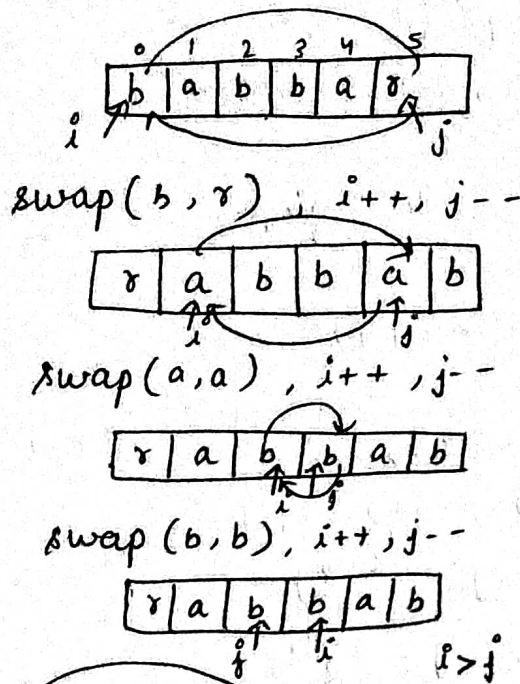 0 1 2 3 4 5
b a b b a r
i j
swap(b, r) , i++, j--
r a b b a b
i j
swap(a,a) , i++, j--
r a b b a b
i j
swap(b,b), i++, j--
r a b b a b
j i
i>j